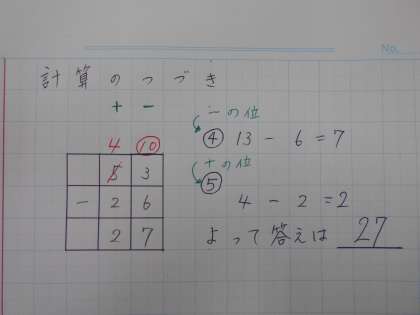 No.
計算のつづき
+ -
一の位
4 ⑩
④ 13 - 6 = 7
5 3
十の位
⑤
- 2 6
4 - 2 = 2
2 7
よって答えは 27